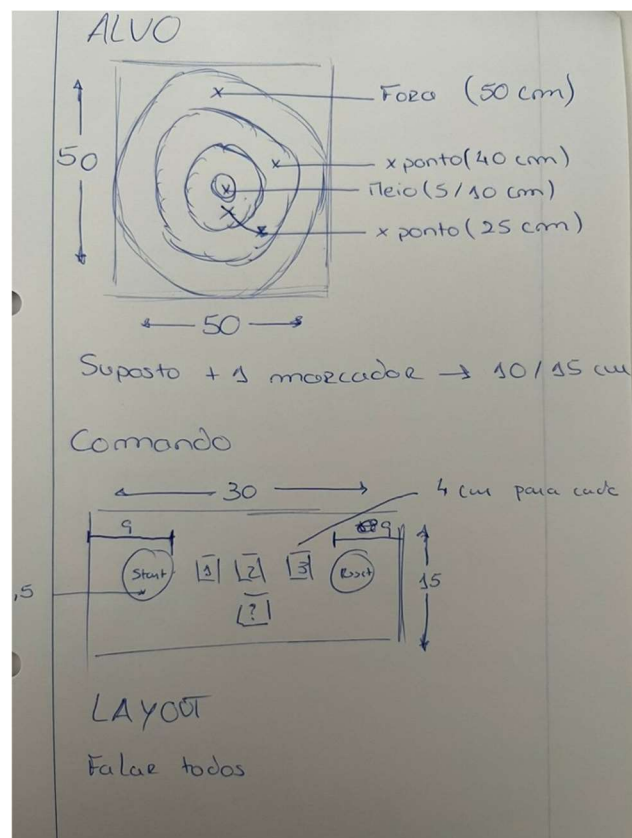 ALVO
Fora (50 cm)
50
x ponto (40 cm)
Meio (5/10 cm)
x ponto (25 cm)
50
Suposto + 1 marcador → 10/15 cm
Comando
30
4 cm para cada
9
9
Start
1
2
3
Reset
15
,5
?
LAYOUT
Falar todos